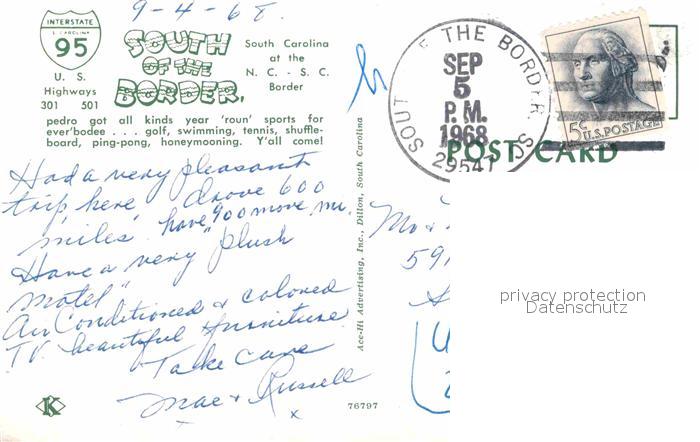 9-4-68.
INTERSTATE
S. CAROLINA
95
U. S.
Highways
301 501
SOUTH
OF THE
BORDER,
South Carolina
at the
N. C. - S. C.
Border
pedro got all kinds year 'roun' sports for
ever'bodee . . . golf, swimming, tennis, shuffle-
board, ping-pong, honeymooning. Y'all come!
Had a very pleasant
trip here, drove 600
miles, have 900 more mi.
Have a very "plush
motel"
Air Conditioned & colored
TV. beautiful furniture
Take care
Mae & Russell
x
K
76797
Ace-Hi Advertising, Inc., Dillon, South Carolina
SOUT F THE BORDER, SO
SEP
5
P.M.
1968
29547
5c U.S. POSTAGE
POST CARD
Mr &
591
privacy protection
Datenschutz